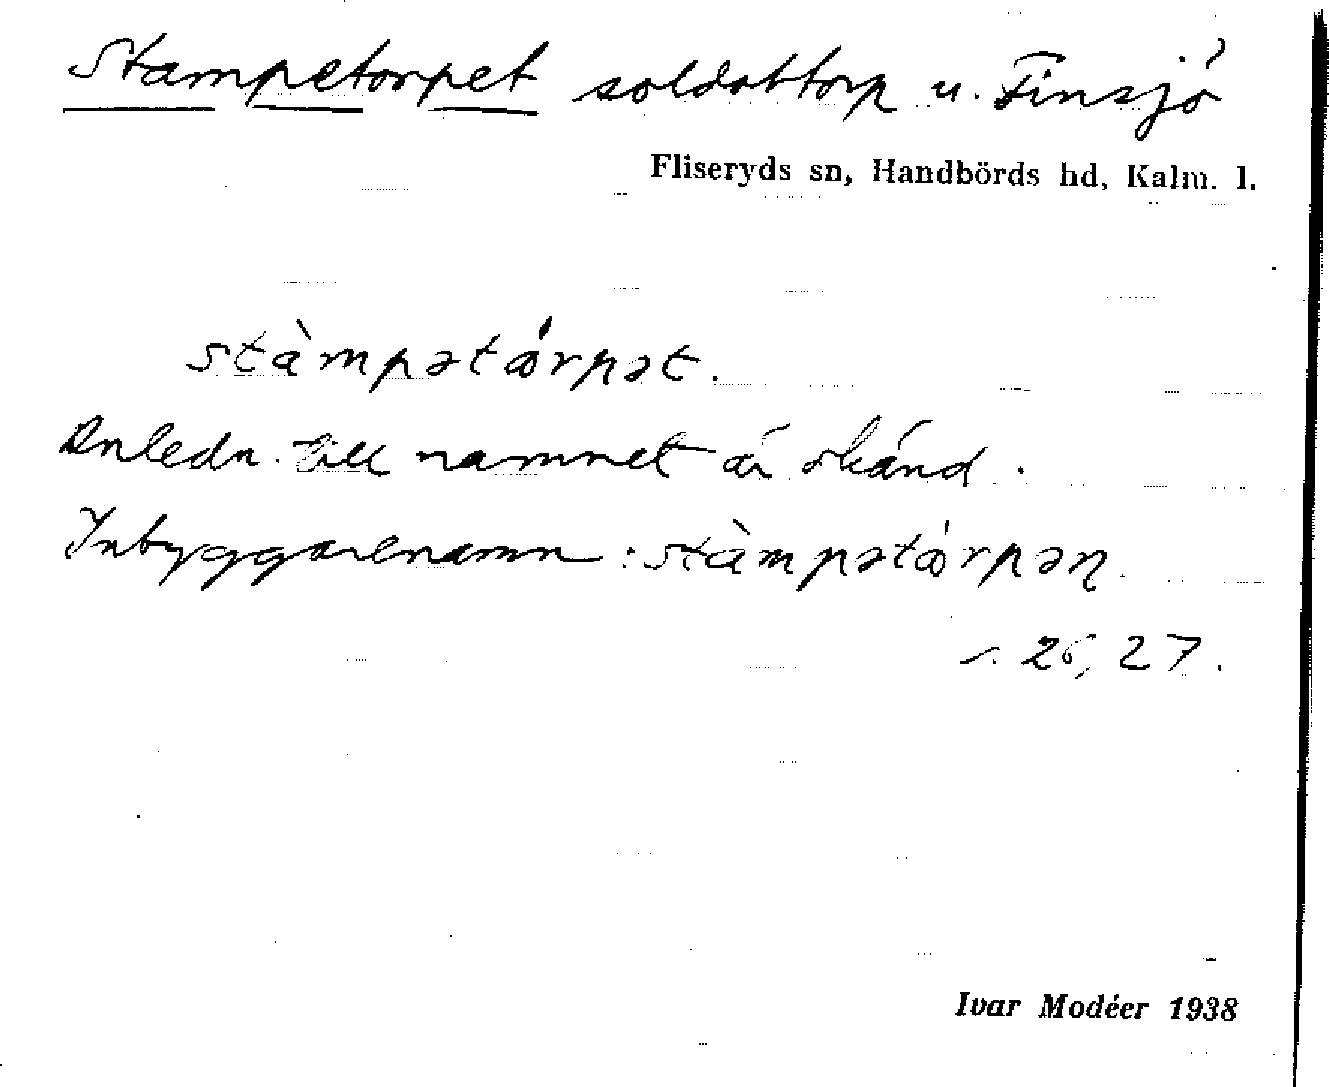 Stampetorpet soldattorp u. Finsjö
Fliseryds sn, Handbörds hd, Kalm. l.
stàmpətårpət.
Anledn. till namnet är okänd.
Inbyggarenamn: stàmpətårpəɳ.
s. 26, 27.
Ivar Modéer 1938